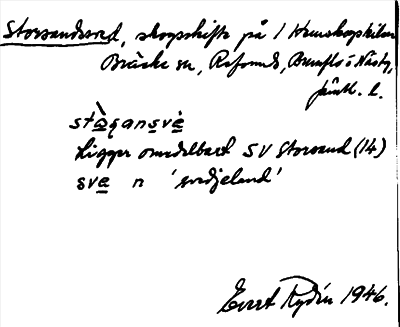 Storsandsved, skogsskifte på 1 Hemskogskilen
Bräcke sn, Refsunds, Brunflo o Näsby,
Jämtl. l.
stòṣansvè
Ligger omedelbart SV Storsand (14)
sve n 'svedjeland'
Evert Rydén 1946.